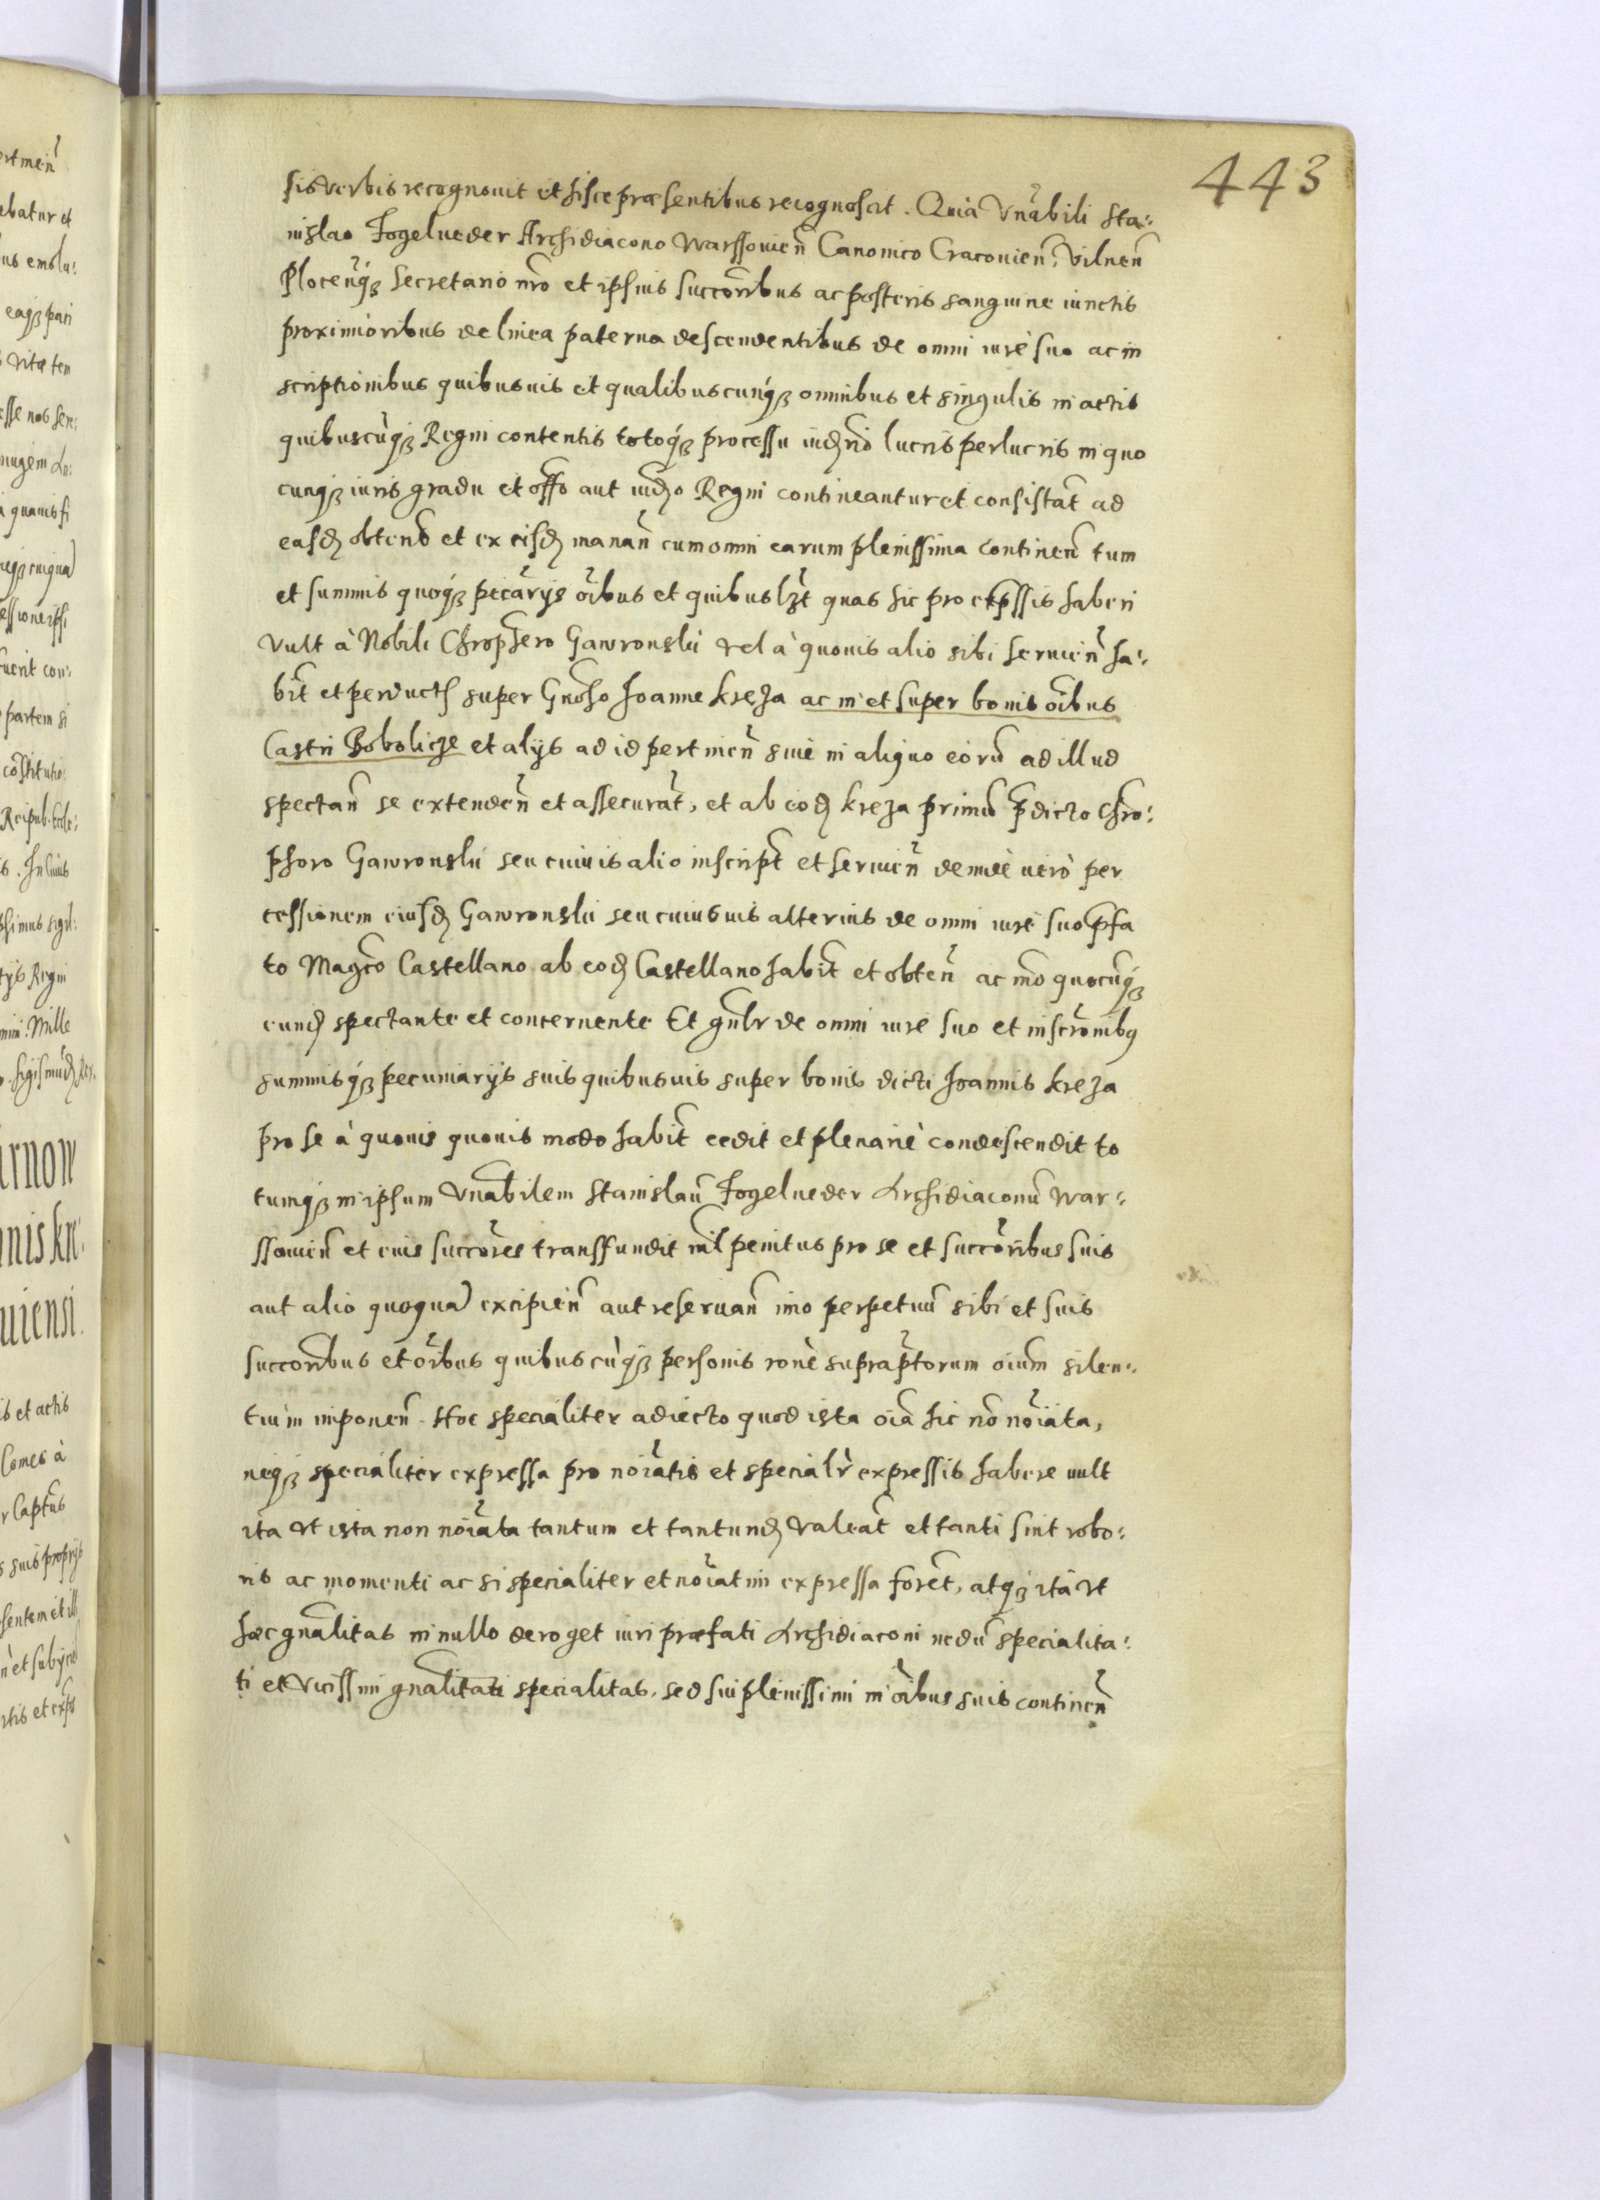 443
sis verbis recognouit et hisce præsentibus recognoscit. Quia Vnãbili Sta:
nislao Fogelueder Archidiacono Warssouien̄ Canonico Cracouien̄, Vilnen̄
Plocen̄q₃ Secretario nr̄o et ipsius succoribus ac posteris sanguine iunctis
proximioribus de linea paterna descendentibus de omni iure suo ac in
scriptionibus quibusuis et qualibuscunq₃ omnibus et singulis in actis
quibuscùq₃ Regni contentis totoq₃ processu iud rio lucris perlucris in quo
cunq₃ iuris gradu et offo aut iud o Regni contineantur et consistāt ad
easd obtent et ex eisd manan̄ cum omni earum plenissima continen̄ tum
et summis quoq₃ pecãrijs oĩbus et quibuslzt quas hic pro expssis haberi
vult à Nobili Chrophero Gawronski vel à quouis alio sibi seruien̄ ha:
bit et perduct super Gnoso Joanne kreza ac in et super bonis oĩbus
Castri Bobolicze et alijs ad id pertinen̄ siue in aliquo eorū ad illud
spectan̄ se extenden̄ et assecurat, et ab eod kreza primū p̄dicto Chro:
phoro Gawronski seu cuiuis alio inscript et seruien̄ deinde uerò per
cessionem eiusd Gawronski seu cuiusuis alterius de omni iure suo p̄fa
to Mag̃co Castellano ab eod Castellano habit et obten̄ ac m̄o quocūq₃
eund spectante et concernente Et gn̄lr de omni iure suo et inscrõnibq
summisq₃ pecuniarijs suis quibusuis super bonis dicti Joannis kreza
pro se à quouis quouis modo habit cedit et plenariè condescendit to
tumq₃ in ipsum Vnãbilem Stanislaū Fogelueder Archidiaconū War:
ssouien̄ et eius succores transfundit nil penitus pro se et succoribus suis
aut alio quoqua excipien̄ aut reseruan̄ imo perpetuū sibi et suis
succoribus et oĩbus quibuscùq₃ personis ronè suprap̃torum oiūm silen:
tium imponen̄. Hoc specialiter adiecto quod ista oĩa hic nō noiāta,
neq₃ specialiter expressa pro noiātis et specialr expressis habere uult
ita vt ista non noiāta tantum et tantund valeāt et tanti sint robo:
ris ac momenti ac si specialiter et noiātim expressa forēt, atq₃ ita vt
hæc gnālitas in nullo deroget iuri præfati Archidiaconi nedū specialita:
ti et vicissim gnālitati specialitas, sed sui plenissimi in oĩbus suis continen̄